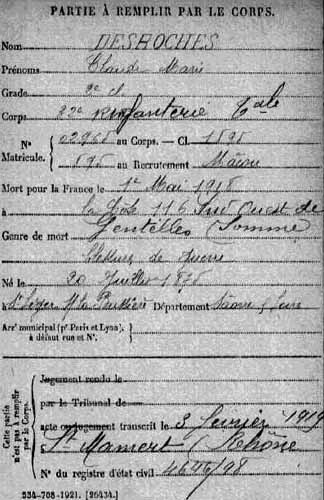 PARTIE À REMPLIR PAR LE CORPS.
Nom DESROCHES
Prénoms Claude Marie
Grade 2e cl
Corps 22e Rt Infanterie Cale
No Matricule. 02965 au Corps. — Cl. 1895
895 au Recrutement Mâcon
Mort pour la France le 1er Mai 1918
à la côte 116 Sud Ouest de
Gentelles (Somme)
Genre de mort
Blessures de Guerre
Né le 20 Juillet 1875
St Léger s/s la Bussière Département Saône & Loire
Arrt municipal (pr Paris et Lyon),
à défaut rue et No.
Cette partie n'est pas à remplir par le Corps.
Jugement rendu le
par le Tribunal de
acte ou jugement transcrit le 3 février 1919
St Mamert (Rhône)
No du registre d'état civil
534-708-1921. [26434.]